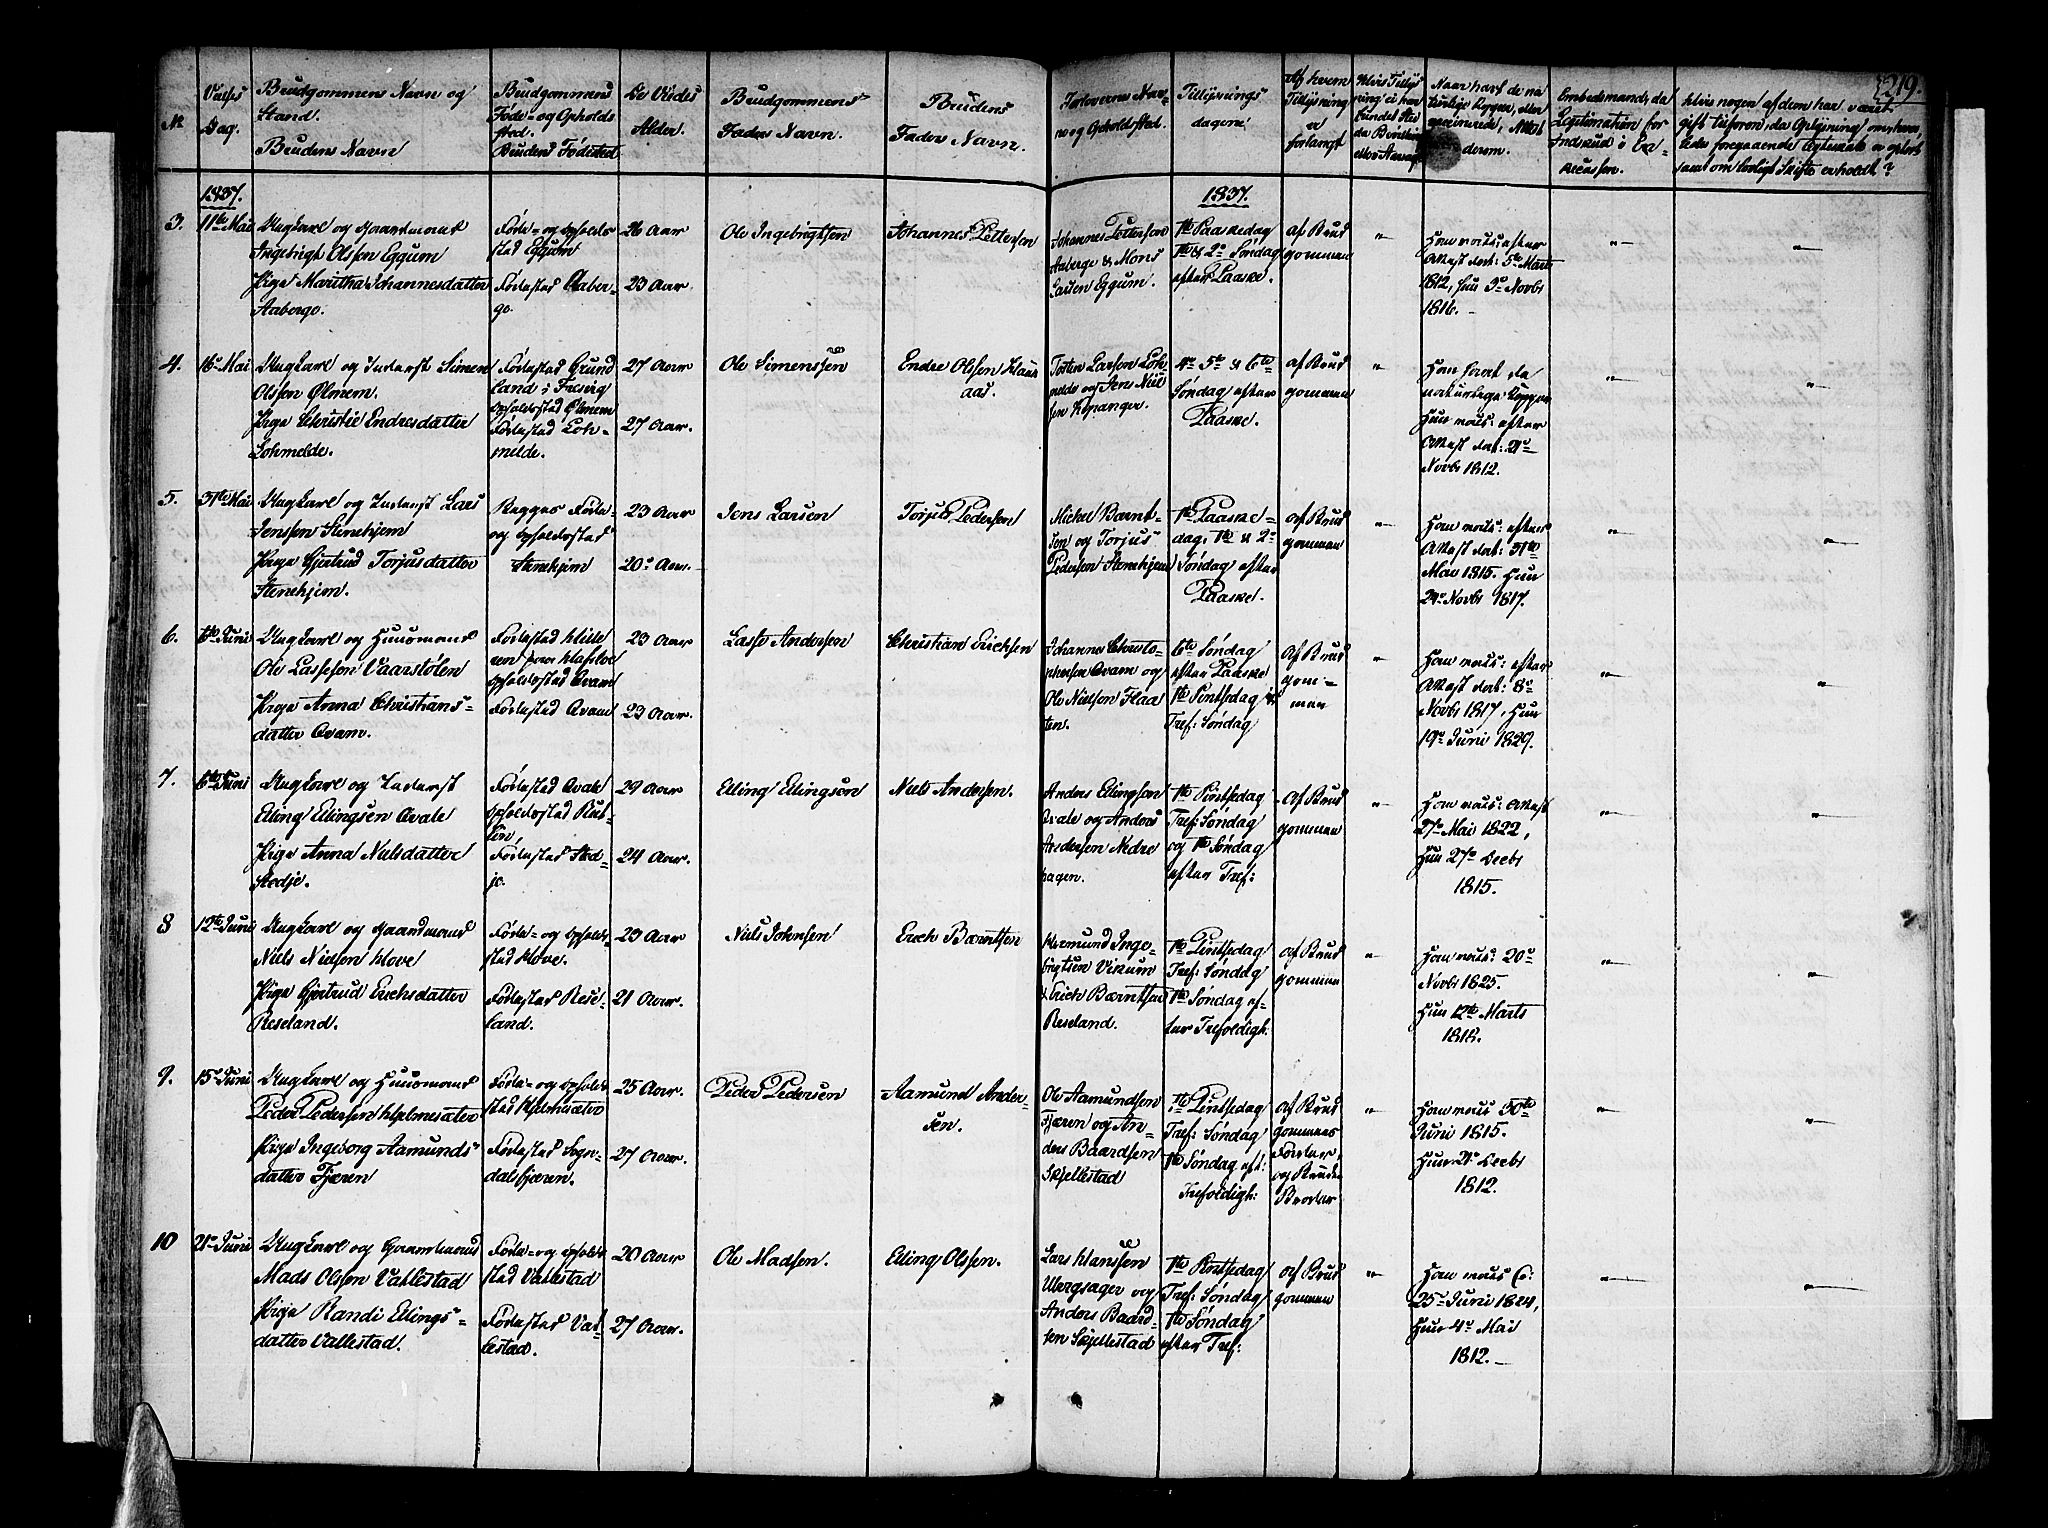 219.
No
Vielses
Dag.
Brudgommens Navn og
Stand.
Brudens Navn
Brudgommens
Føde- og Opholds
sted.
Brudens Fødested
De Viedes
Alder.
Brudgommens
Faders Navn.
Brudens
Faders Navn.
Forlovernes Nav-
ne og Opholdsted.
Tillysnings
dagene
Af hvem
Tillysning
er
forlangt
Naar havt de na-
turlige Kopper, eller
vaccinerede, Attest
derom.
1837.
1837.
3.
11te Mai
Ungkarl og Gaardmand
Ingebrigt Olsen Eggum
Pige Maritha Johannesdatter
Aaberge.
Føde- og Opholds
sted Eggum
Fødested Aaber-
ge.
26 Aar
23 Aar
Ole Ingebrigtsen
Johannes Pettersen
Johannes Pettersen
Aaberge & Mons
Larsen Eggum.
1te Paaskedag
1te & 2den Søndag
efter Paaske.
af Brud
gommen
"
Han vacs: efter
Attest dat: 5te Marts
1812, hun 3de Novbr
1816.
"
"
4.
16de Mai
Ungkarl og Inderst Simen
Olsen Ølmem.
Pige Christie Endresdatter
Lohmelde.
Fødested Grund
land i Fresvig
Opholdssted Ølmem
Fødested Loh-
melde.
27 Aar
27 Aar.
Ole Simenssen
Endre Olsen
aas.
Larsen Loh-
melde og Jens Niel
sen Kopanger.
4de 5te & 6te
Søndag efter
Paaske.
af Brud
gommen
"
Han havt de
naturlige Kopper
Hun vacs: efter
Attest dat: 21de
Novbr 1812.
"
"
5.
31te Mai
Ungkarl og Inderst Lars
Jenssen Stenehjem
Pige Gjertrud Torjusdatter
Stenehjem.
Begges Føde-
og Opholdssted
Stenehjem
23 Aar
20 Aar.
Jens Larsen
Torjus Pedersen
Michel Bærnt-
sen og Torjus
Pedersen Stenehjem
1te Paaske-
dag, 1te & 2de
Søndag efter
Paaske.
af Brud
gommen
"
Han vacs: efter
Attest dat: 31te
Mai 1815. Hun
24de Novbr 1817.
"
"
6.
6te Juni
Ungkarl og Huusmand
Ole Lassesen Vaarstølen
Pige Anna Christians-
datter Qvam.
Opholdssted Qvam
Fødested Qvam
23 Aar
23 Aar.
Lasse Andersen
Christian Erichsen
Johannes Christo-
phersen Qvam og
Ole Nielsen Flaa
ten.
6te Søndag
efter Paaske
1te Pintsedag &
Tref: Søndag
af Brud
gom-
men
"
Han vacs: efter
Attest dat: 8de
Novbr 1817, Hun
19de Juni 1829.
"
"
7.
6te Juni
Ungkarl og Inderst
Elling Ellingsen Qvale
Pige Anna Nielsdatter
Stedje.
Fødested Qvale
Opholdssted Rut-
lin,
Fødested Sted-
je.
29 Aar
24 Aar.
Elling Ellingsen
Niels Andersen.
Anders Ellingsen
Qvale og Anders
Andersen Nedre
hagen.
1te Pintsedag
Tref: Søndag
og 1te Søndag
efter Tref:
af Brud
gommen
"
Han vacs: Attest
27de Mai 1822,
Hun 27de Decbr
1815.
"
"
8
12te Juni
Ungkarl og Gaardmand
Niels Nielsen Hove
Pige Gjertrud Erichsdatter
Reseland.
Føde- og Opholds
sted Hove.
Fødested Rese-
land.
23 Aar
21 Aar.
Niels Johnsen
Erich Bærntsen
Hermund Inge-
brigtsen Vikum
& Erich Bærntsen
Reseland.
1te Pintsedag
Tref: Søndag
1te Søndag ef-
ter Trefoldigh:
af Brud
gommen
"
Han vacs: 20de
Novbr 1825.
Hun 12te Marts
1818.
"
"
9.
15de Juni
Ungkarl og Huusmand
Peder Pedersen Hjelmesæter
Pige Ingeborg Aamunds
datter Fjæren
Føde- og Opholds
sted Hjelmesæter
Fødested Sogn-
dalsfjæren.
25 Aar
27 Aar.
Peder Pedersen
Aamund Ander-
sen.
Ole Aamundsen
Fjæren og An-
ders Baardsen
Skjellestad
1te Pintsedag
Tref: Søndag
1te Søndag eft:
Trefoldigh:
af Brud
gommens
Fader
og Brudens
Broder
"
Han vacs 30te
Juni 1815.
Hun 21de Decbr
1812.
"
"
10
21de Juni
Ungkarl og Gaardmand
Mads Olsen Vallestad
Pige Randi Ellings-
datter Vallestad.
Føde- og Opholds
sted Vallestad
Fødested Val-
lestad.
20 Aar
27 Aar.
Ole Madsen.
Elling Olsen.
Lars Hanssen
Ubergsager og
Anders Baard-
sen Skjellestad
1te Pintsedag
Tref: Søndag
1te Søndag
efter Tref:
af Brud
gommen
"
Han vacs
25de Juni 1824,
Hun 4de Mai
1812.
"
"